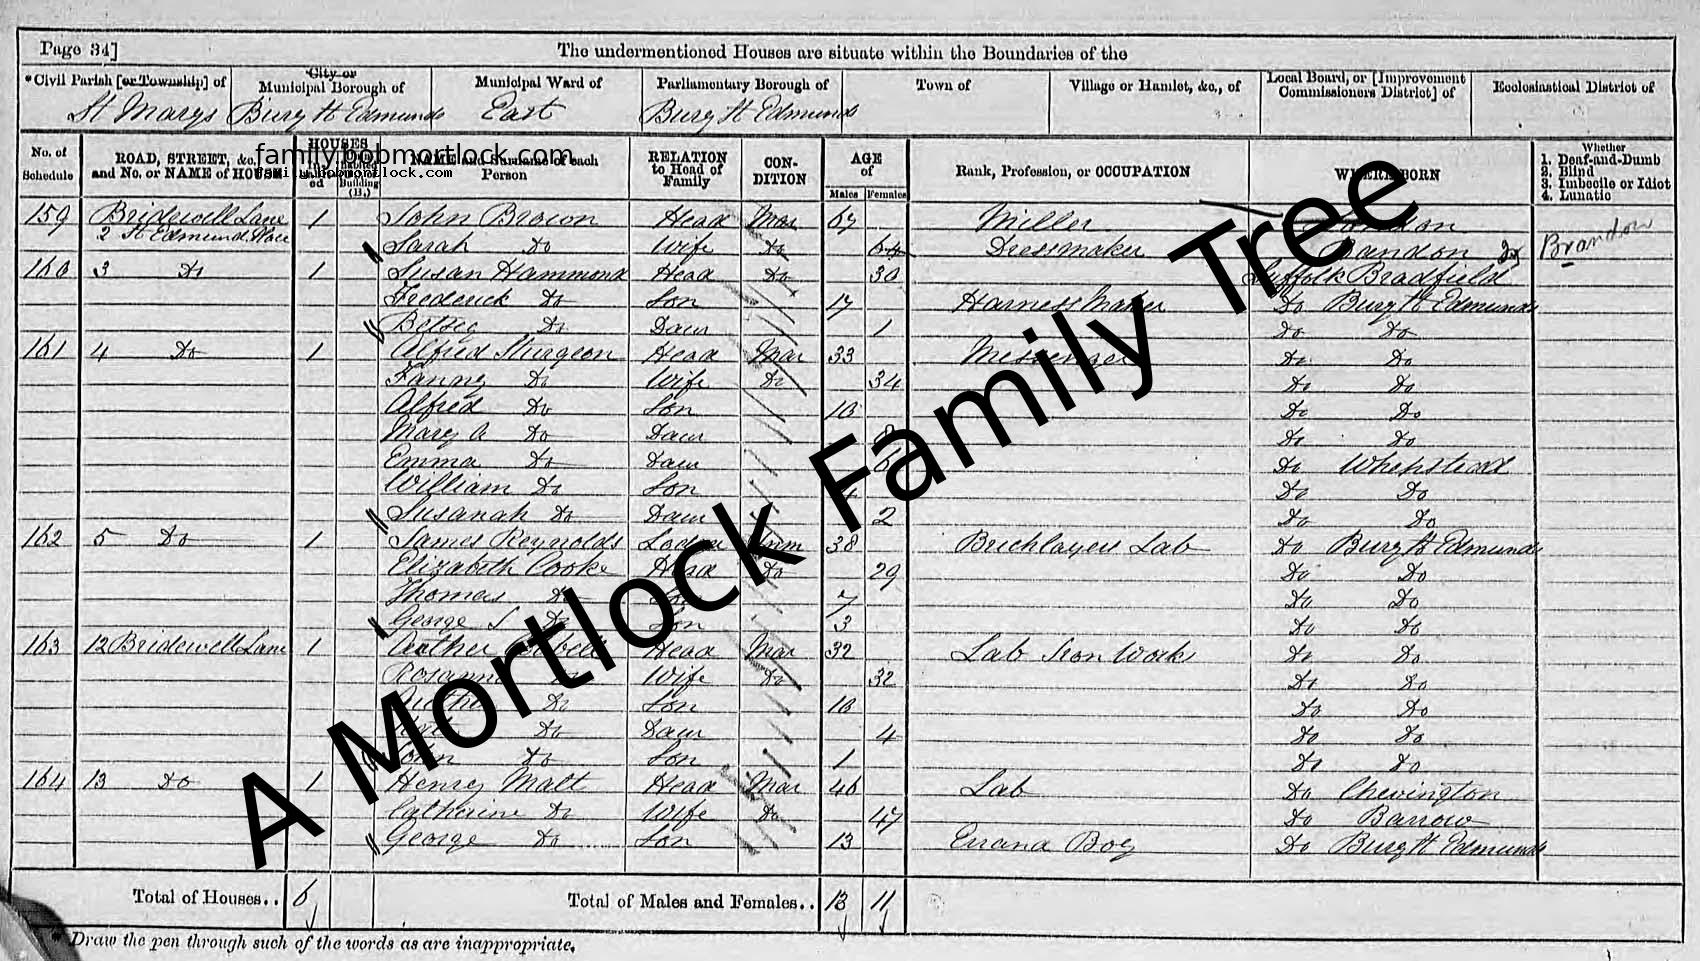 Page 34]
The undermentioned Houses are situate within the Boundaries of the
*Civil Parish [or Township] of City or Municipal Borough of Municipal Ward of Parliamentary Borough of Town of Village or Hamlet, &c., of Local Board, or [Improvement Commissioners District] of Ecclesiastical District of
St Marys Bury St Edmunds East Bury St Edmunds
familybobmortlock.com
familybobmortlock.com
No. of Schedule ROAD, STREET, &c., and No. or NAME of HOUSE HOUSES NAME and Surname of each Person RELATION to Head of Family CON-DITION AGE of Males Females Rank, Profession, or OCCUPATION WHERE BORN Whether 1. Deaf-and-Dumb 2. Blind 3. Imbecile or Idiot 4. Lunatic
159 Bridewell Lane 1 John Brown Head Mar 67 Miller
2 St Edmunds Place Sarah Do Wife Do 64 Dressmaker Brandon Do Brandon
160 3 Do 1 Susan Hammond Head Do 30 Suffolk Bradfield
Frederick Do Son 17 Harness Maker Do Bury St Edmunds
Betsey Do Daur 1 Do Do
161 4 Do 1 Alfred Sturgeon Head Mar 33 Messenger Do Do
Fanny Do Wife Do 34 Do Do
Alfred Do Son 10 Do Do
Mary A Do Daur Do Do
Emma Do Daur Do Whepstead
William Do Son Do Do
Susanah Do Daur 2 Do Do
162 5 Do 1 James Reynolds Lodger Unm 38 Bricklayers Lab Do Bury St Edmunds
Elizabeth Cooke Head Do 29 Do Do
Thomas Do Son 7 Do Do
George S Do Son 3 Do Do
163 12 Bridewell Lane 1 Arther Head Mar 32 Lab Iron Work Do Do
Rosanna Wife Do 32 Do Do
Arther Do Son 10 Do Do
Do Daur 4 Do Do
John Do Son 1 Do Do
164 13 Do 1 Henry Malt Head Mar 46 Lab Do Chevington
Catherine Do Wife Do 47 Do Barrow
George Do Son 13 Errand Boy Do Bury St Edmunds
Total of Houses.. 6 Total of Males and Females.. 13 11
* Draw the pen through such of the words as are inappropriate.
A Mortlock Family Tree